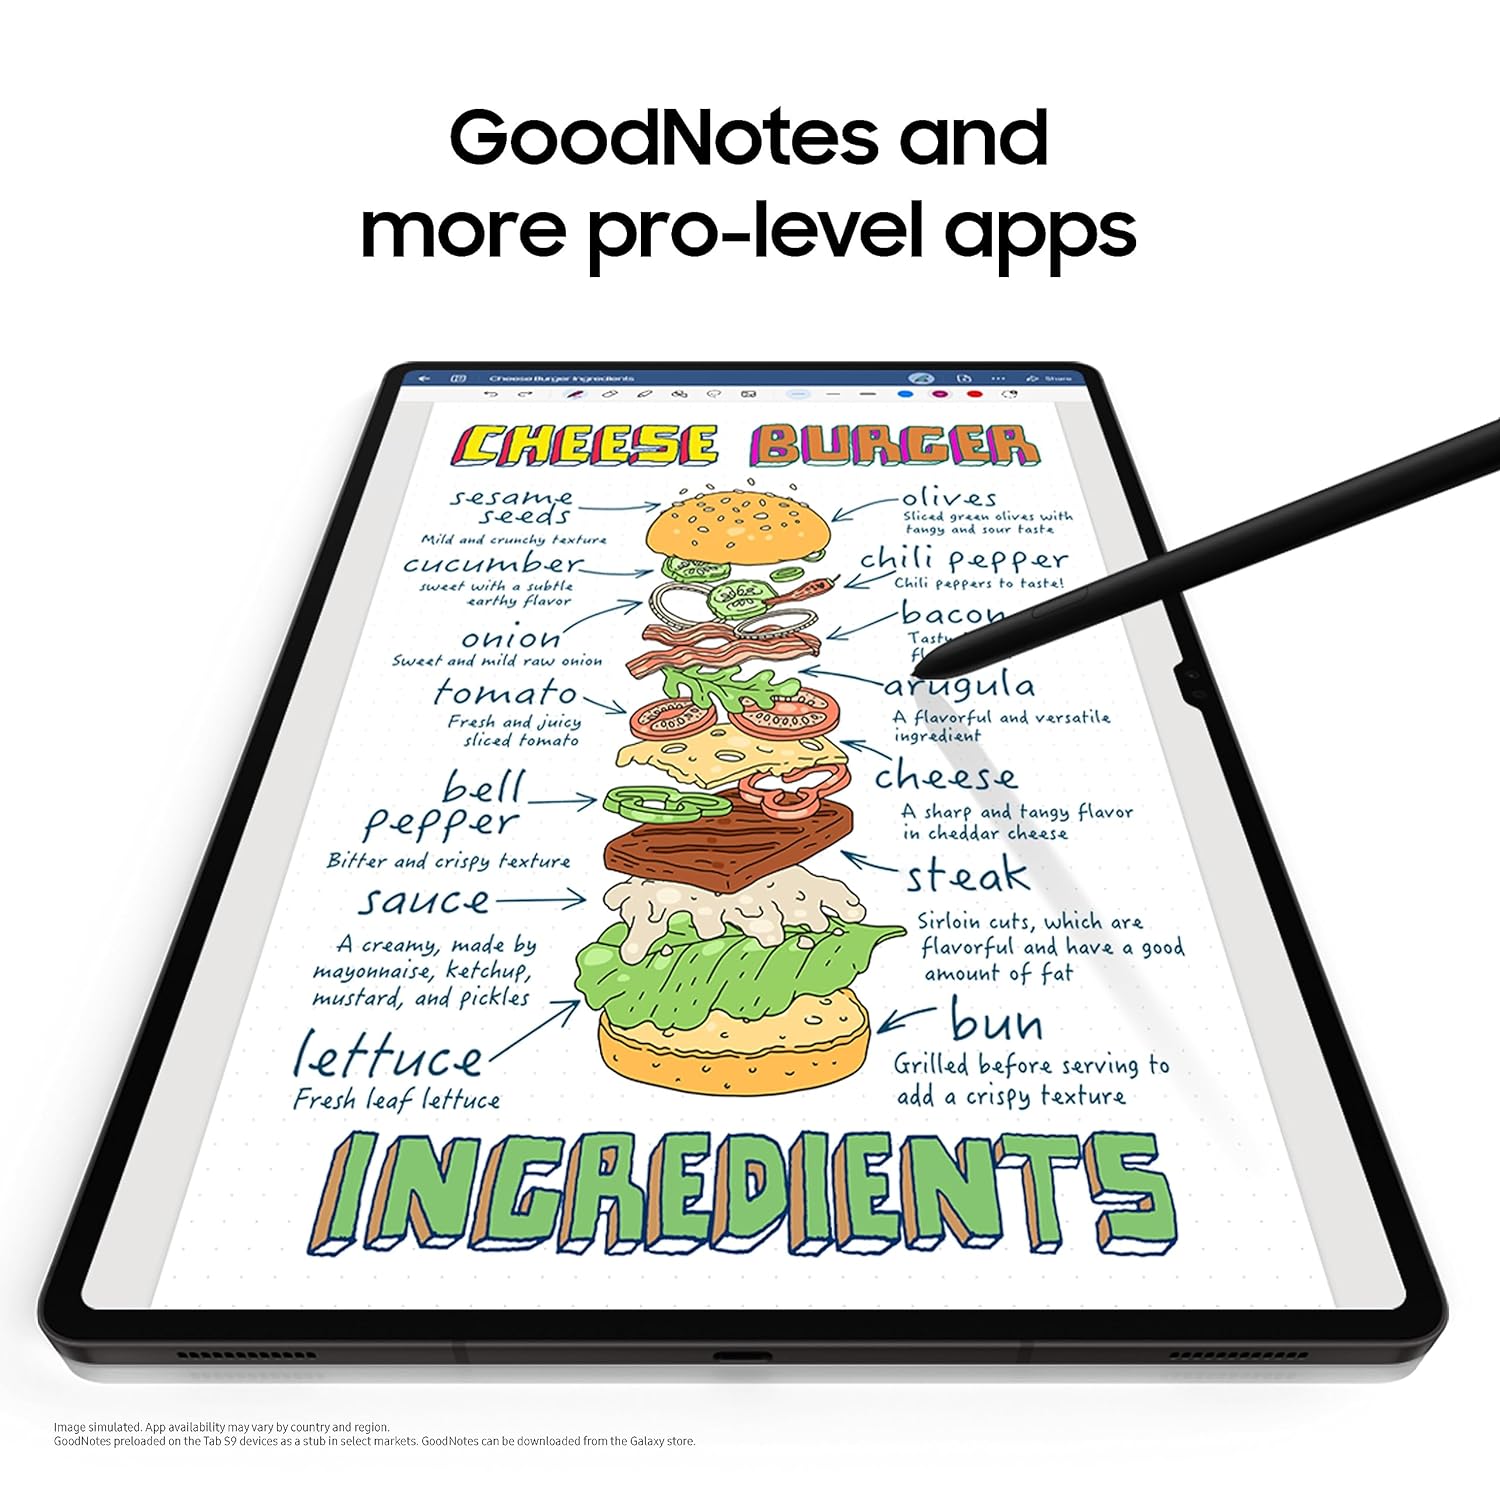 GoodNotes and
more pro-level apps
Cheese Burger Ingredients
Share
CHEESE BURGER
sesame
seeds
Mild and crunchy texture
cucumber
sweet with a subtle
earthy flavor
onion
Sweet and mild raw onion
tomato
Fresh and juicy
sliced tomato
bell
pepper
Bitter and crispy texture
sauce
A creamy, made by
mayonnaise, ketchup,
mustard, and pickles
lettuce
Fresh leaf lettuce
olives
Sliced green olives with
tangy and sour taste
chili pepper
Chili peppers to taste!
bacon
arugula
A flavorful and versatile
ingredient
cheese
A sharp and tangy flavor
in cheddar cheese
steak
Sirloin cuts, which are
flavorful and have a good
amount of fat
bun
Grilled before serving to
add a crispy texture
INGREDIENTS
Image simulated. App availability may vary by country and region.
GoodNotes preloaded on the Tab S9 devices as a stub in select markets. GoodNotes can be downloaded from the Galaxy store.